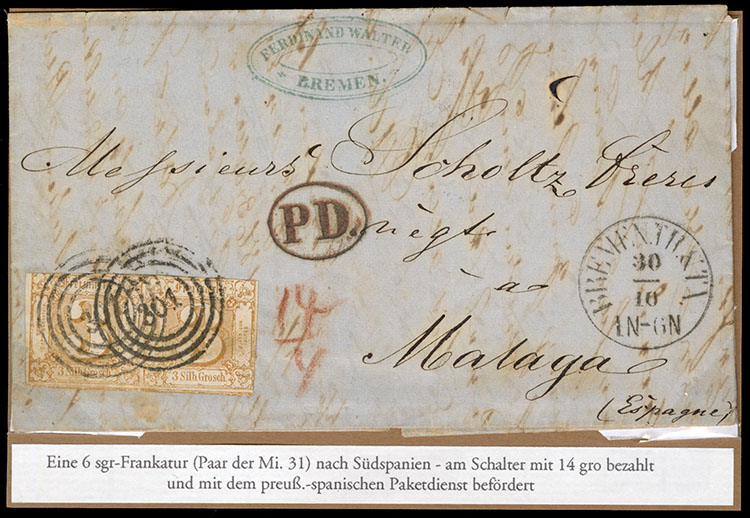 FERDINAND WALTER
BREMEN.
Messieurs Scholtz frères
P.D.
négts
à
BREMEN TH&TX
30
10
1N-6N
301
14
3 Silb. Grosch.
Malaga
(Espagne)
Eine 6 sgr-Frankatur (Paar der Mi. 31) nach Südspanien - am Schalter mit 14 gro bezahlt
und mit dem preuß.-spanischen Paketdienst befördert